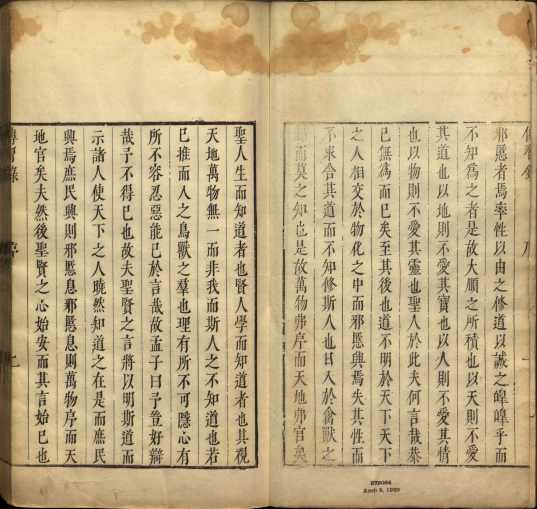 邪慝者焉率性以由之修道以誠之皥皥乎而
不知為之者是故大順之所積也以天則不愛
其道也以地則不愛其寶也以人則不愛其情
也以物則不愛其靈也聖人於此夫何言哉恭
己無為而已矣至其後也道不明於天下天下
之人相交於物化之中而邪慝興焉失其性而
不求合其道而不知修斯人也日入於禽獸之
歸而莫之知也是故萬物弗序而天地弗官矣
聖人生而知道者也賢人學而知道者也其視
天地萬物無一而非我而斯人之不知道也若
己推而入之鳥獸之羣也理有所不可隱心有
所不容忍惡能已於言哉故孟子曰予豈好辯
哉予不得已也故夫聖賢之言將以明斯道而
示諸人使天下之人曉然知道之在是而庶民
興焉庶民興則邪慝息邪慝息則萬物序而天
地官矣夫然後聖賢之心始安而其言始已也
傳習錄 序 二
879084
April 3, 1939